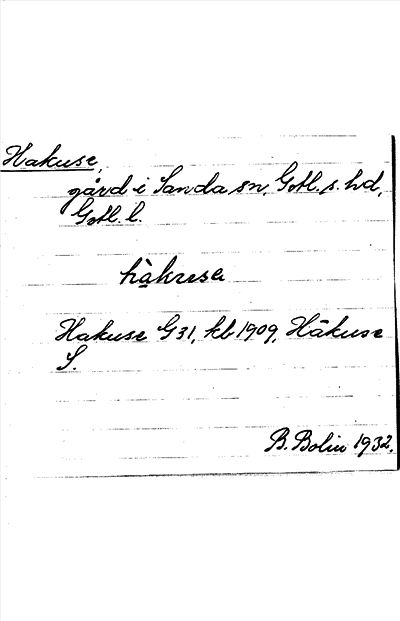 Hakuse,
gård i Sanda sn, Gotl. s. hd,
Gotl. l.
Hakuse G31, kb 1909, Häkuse
S.
B. Bolin 1932.